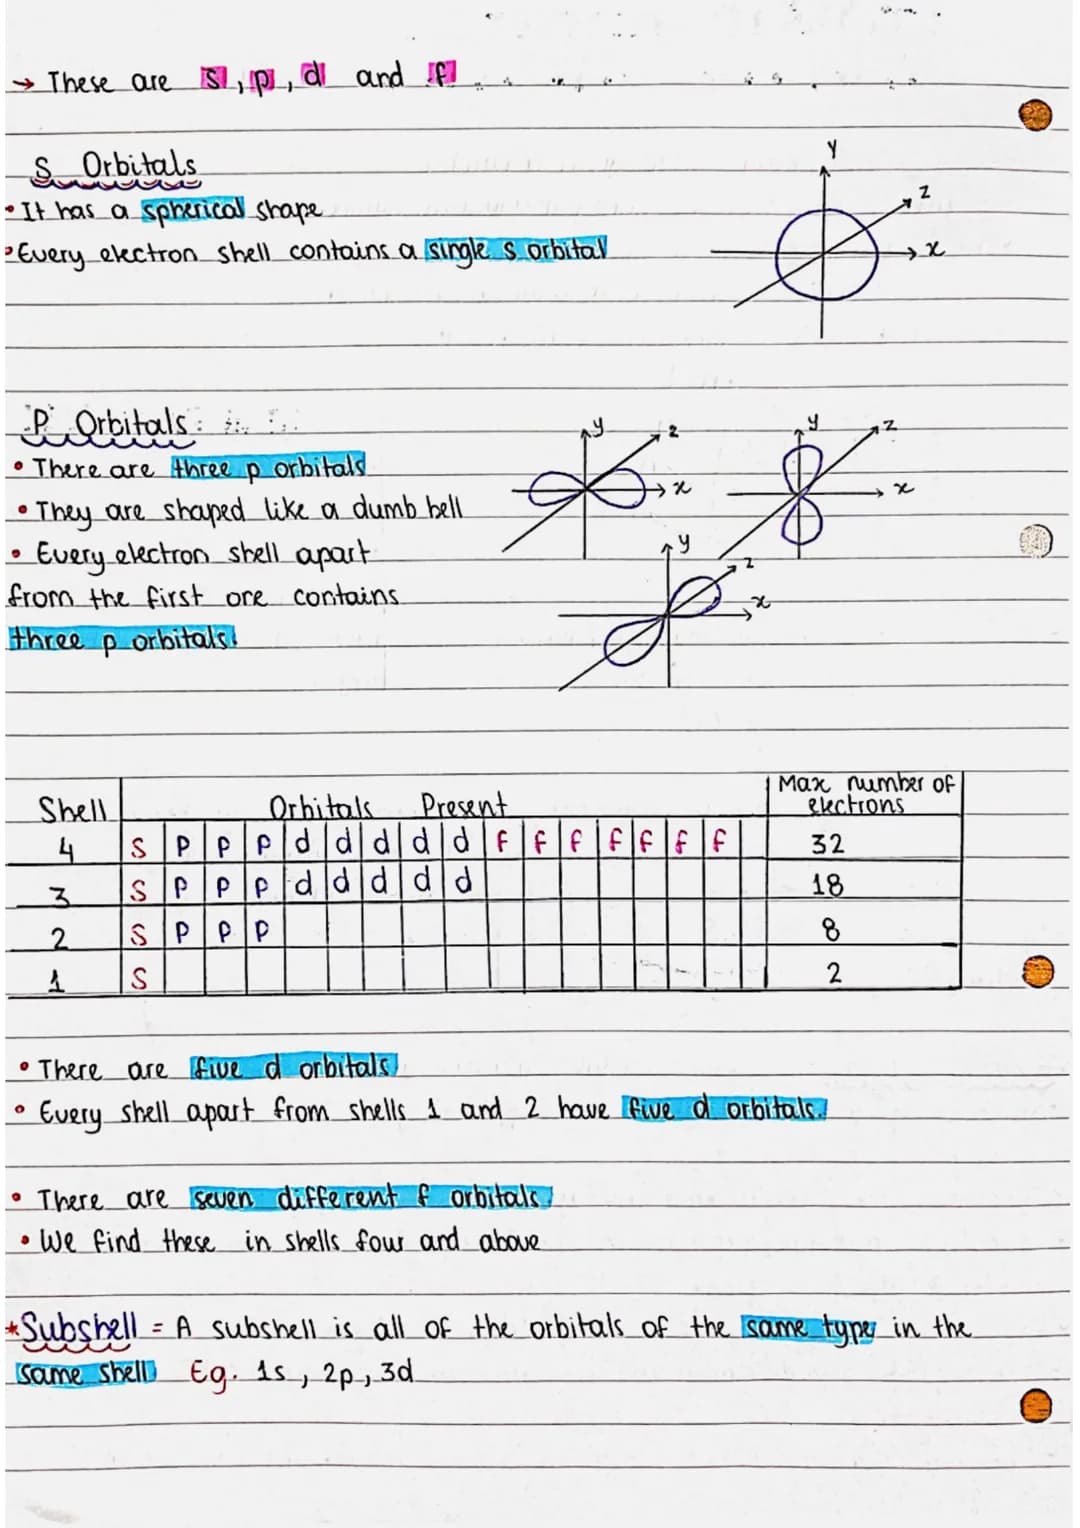 → These are s, p, d and f
S Orbitals
• It has a spherical shape
• Every electron shell contains a single s orbital
y
z
x
P Orbitals
• There are three p orbitals
• They are shaped like a dumb bell
• Every electron shell apart
from the first one contains
three p orbitals.
y
z
x
y
z
x
y
z
x
Shell Orbitals Present Max number of electrons
4 S P P P d d d d d f f f f f f f 32
3 S P P P d d d d d 18
2 S P P P 8
1 S 2
• There are five d orbitals
• Every shell apart from shells 1 and 2 have five d orbitals.
• There are seven different f orbitals.
• We find these in shells four and above
*Subshell = A subshell is all of the orbitals of the same type in the
same shell Eg. 1s, 2p, 3d